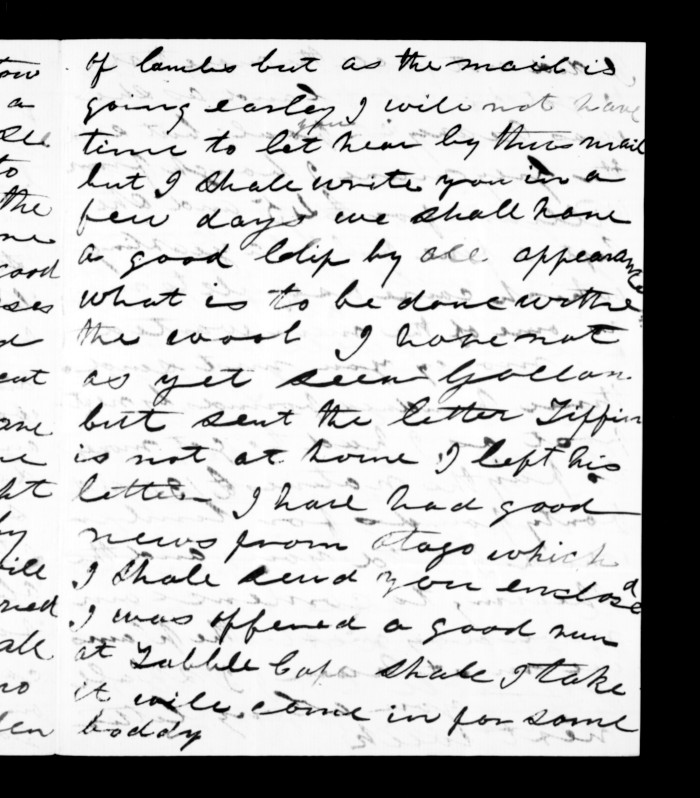 of lambs but as the mail is
going earley I will not have
time to let hear by this mail
but I shall write you in a
few days we shall have
a good Clip by all appearance
what is to be done withe
the wool I have not
as yet seen Gollan
but sent the letter Tiffin
is not at home I left his
letter I have had good
news from Otago which
I shall send you enclosed
I was offered a good run
at Tabble Cape shall I take
it will come in for some
boddy